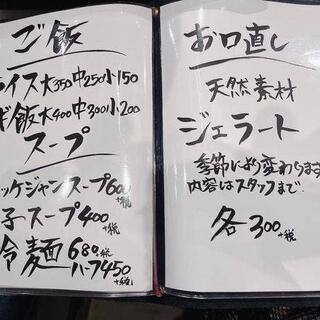 ご飯
イス大350中250小150
ギ飯大400中300小200
スープ
ッケジャンスープ600
+税
子スープ400
+税
冷麺680
+税
ハーフ450
+税
お口直し
天然素材
ジェラート
季節により変わります
内容はスタッフまで
各300
+税